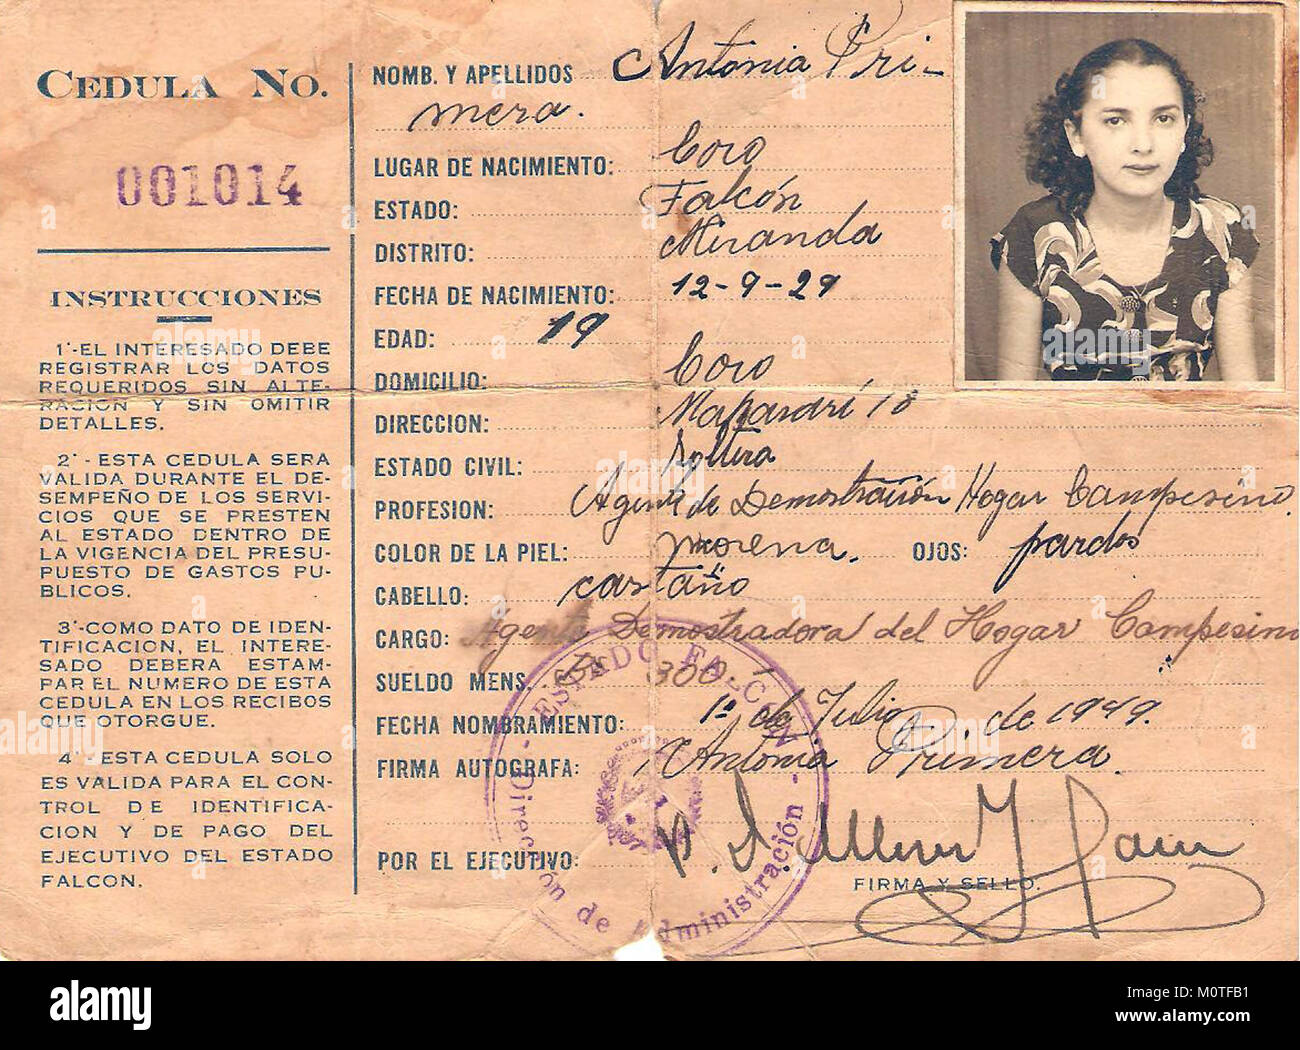 CEDULA NO.
001014
INSTRUCCIONES
1°-EL INTERESADO DEBE
REGISTRAR LOS DATOS
REQUERIDOS SIN ALTE-
RACION Y SIN OMITIR
DETALLES.
2°-ESTA CEDULA SERA
VALIDA DURANTE EL DE-
SEMPEÑO DE LOS SERVI-
CIOS QUE SE PRESTEN
AL ESTADO DENTRO DE
LA VIGENCIA DEL PRESU-
PUESTO DE GASTOS PU-
BLICOS.
3°-COMO DATO DE IDEN-
TIFICACION, EL INTERE-
SADO DEBERA ESTAM-
PAR EL NUMERO DE ESTA
CEDULA EN LOS RECIBOS
QUE OTORGUE.
4°-ESTA CEDULA SOLO
ES VALIDA PARA EL CON-
TROL DE IDENTIFICA-
CION Y DE PAGO DEL
EJECUTIVO DEL ESTADO
FALCON.
NOMB. Y APELLIDOS Antonia Pri-
mera.
LUGAR DE NACIMIENTO: Coro
ESTADO: Falcón
DISTRITO: Miranda
FECHA DE NACIMIENTO: 12-9-29
EDAD: 19
DOMICILIO: Coro
DIRECCION: 18
ESTADO CIVIL: soltera
PROFESION: Agente de Demostración Hogar Campesino.
COLOR DE LA PIEL: morena. OJOS: pardos
CABELLO: castaño
CARGO: Agente Demostradora del Hogar Campesino
SUELDO MENS. Bs 300
FECHA NOMBRAMIENTO: 1° de Julio de 1949.
FIRMA AUTOGRAFA: Antonia Primera.
POR EL EJECUTIVO:
FIRMA Y SELLO.
ESTADO FALCON
Dirección de Administración
alamy
Image ID: M0TFB1
www.alamy.com